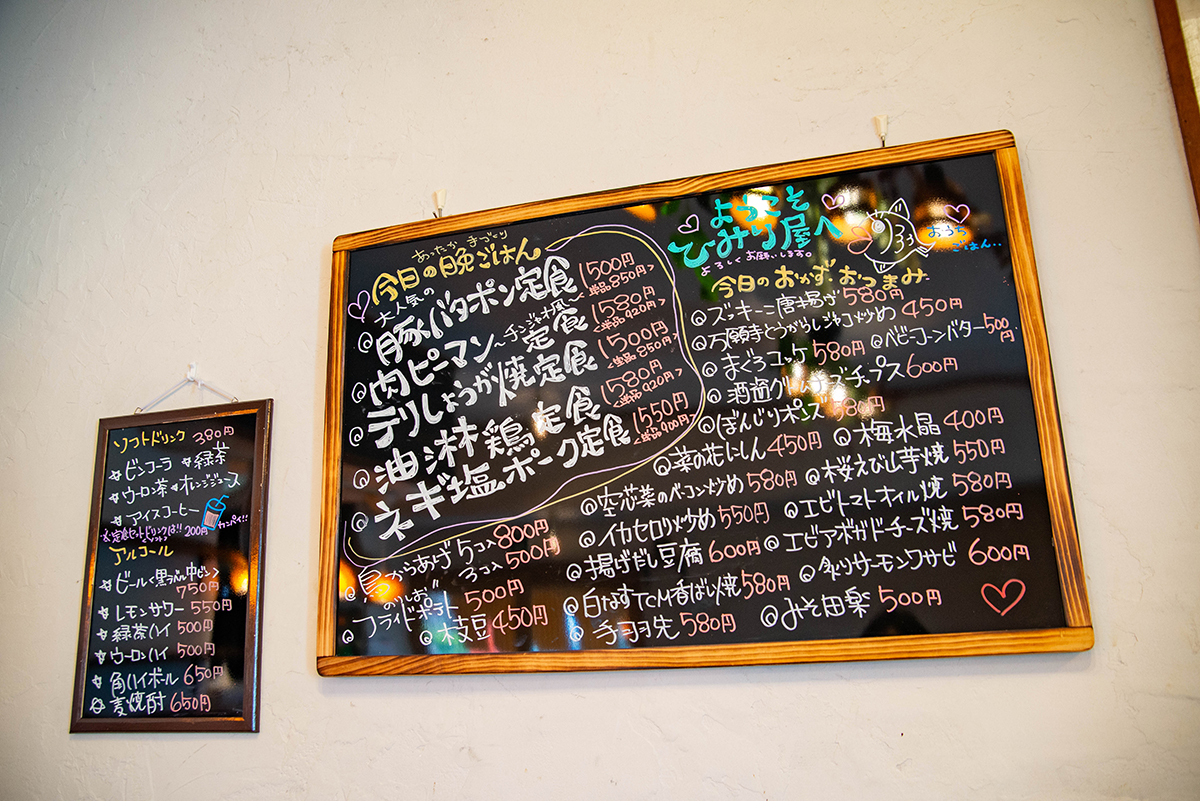 ソフトドリンク 380円
ビンコーラ 緑茶
ウーロン茶 オレンジジュース
アイスコーヒー
定食セットドリンクは!! 200円 カンパイ!!
アルコール
ビール<黒ラベル中ビン>
750円
レモンサワー 550円
緑茶ハイ 500円
ウーロンハイ 500円
角ハイボール 650円
麦焼酎 650円
あったか 手づくり
今日の晩ごはん
大人気の
豚バタポン定食 1500円
<単品850円>
肉ピーマン〜チンジャオ風〜定食 1580円
<単品920円>
テリしょうが焼定食 1500円
<単品850円>
油淋鶏定食 1580円
<単品920円>
ネギ塩ポーク定食 1550円
<単品900円>
鳥からあげ 5コ入 800円
3コ入 500円
のりしお
フライドポテト 500円
枝豆 450円
ようこそ
ひみり屋へ
よろしくお願いします。
おうち
ごはん..
今日のおかず・おつまみ
ズッキーニ唐揚げ 580円
万願寺とうがらしジャコ炒め 450円
まぐろコロッケ 580円 ベビーコーンバター 500円
酒盗クリームチーズチップス 600円
ぼんじりポンズ 580円
菜の花にしん 450円 梅水晶 400円
空芯菜のベーコン炒め 580円 桜えび山芋焼 550円
イカセロリ炒め 550円 エビトマトオイル焼 580円
揚げだし豆腐 600円 エビアボカドチーズ焼 580円
白なすTCM香ばし焼 580円 炙りサーモンワサビ 600円
手羽先 580円 みそ田楽 500円